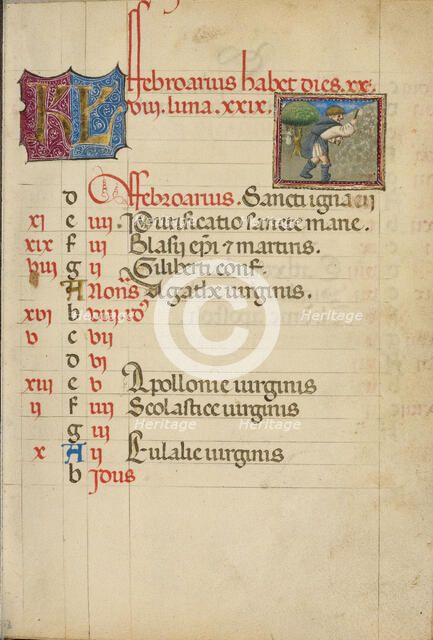 KL ffebroarius habet dies. xx
viii. luna. xxix.
d ffebroarius. Sancti ignacii
xi e iiii. Purificatio sancte marie.
xix f iii Blasii epi & martiris.
viii g ii Giliberti conf.
A Nonas Agathe virginis.
xvi b viii id9
v c vii
d vi
xiii e v Apollonie virginis
ii f iiii Scolastice virginis
g iii
x A ii Eulalie virginis
b Jdus
Heritage
Heritage
Heritage
Heritage